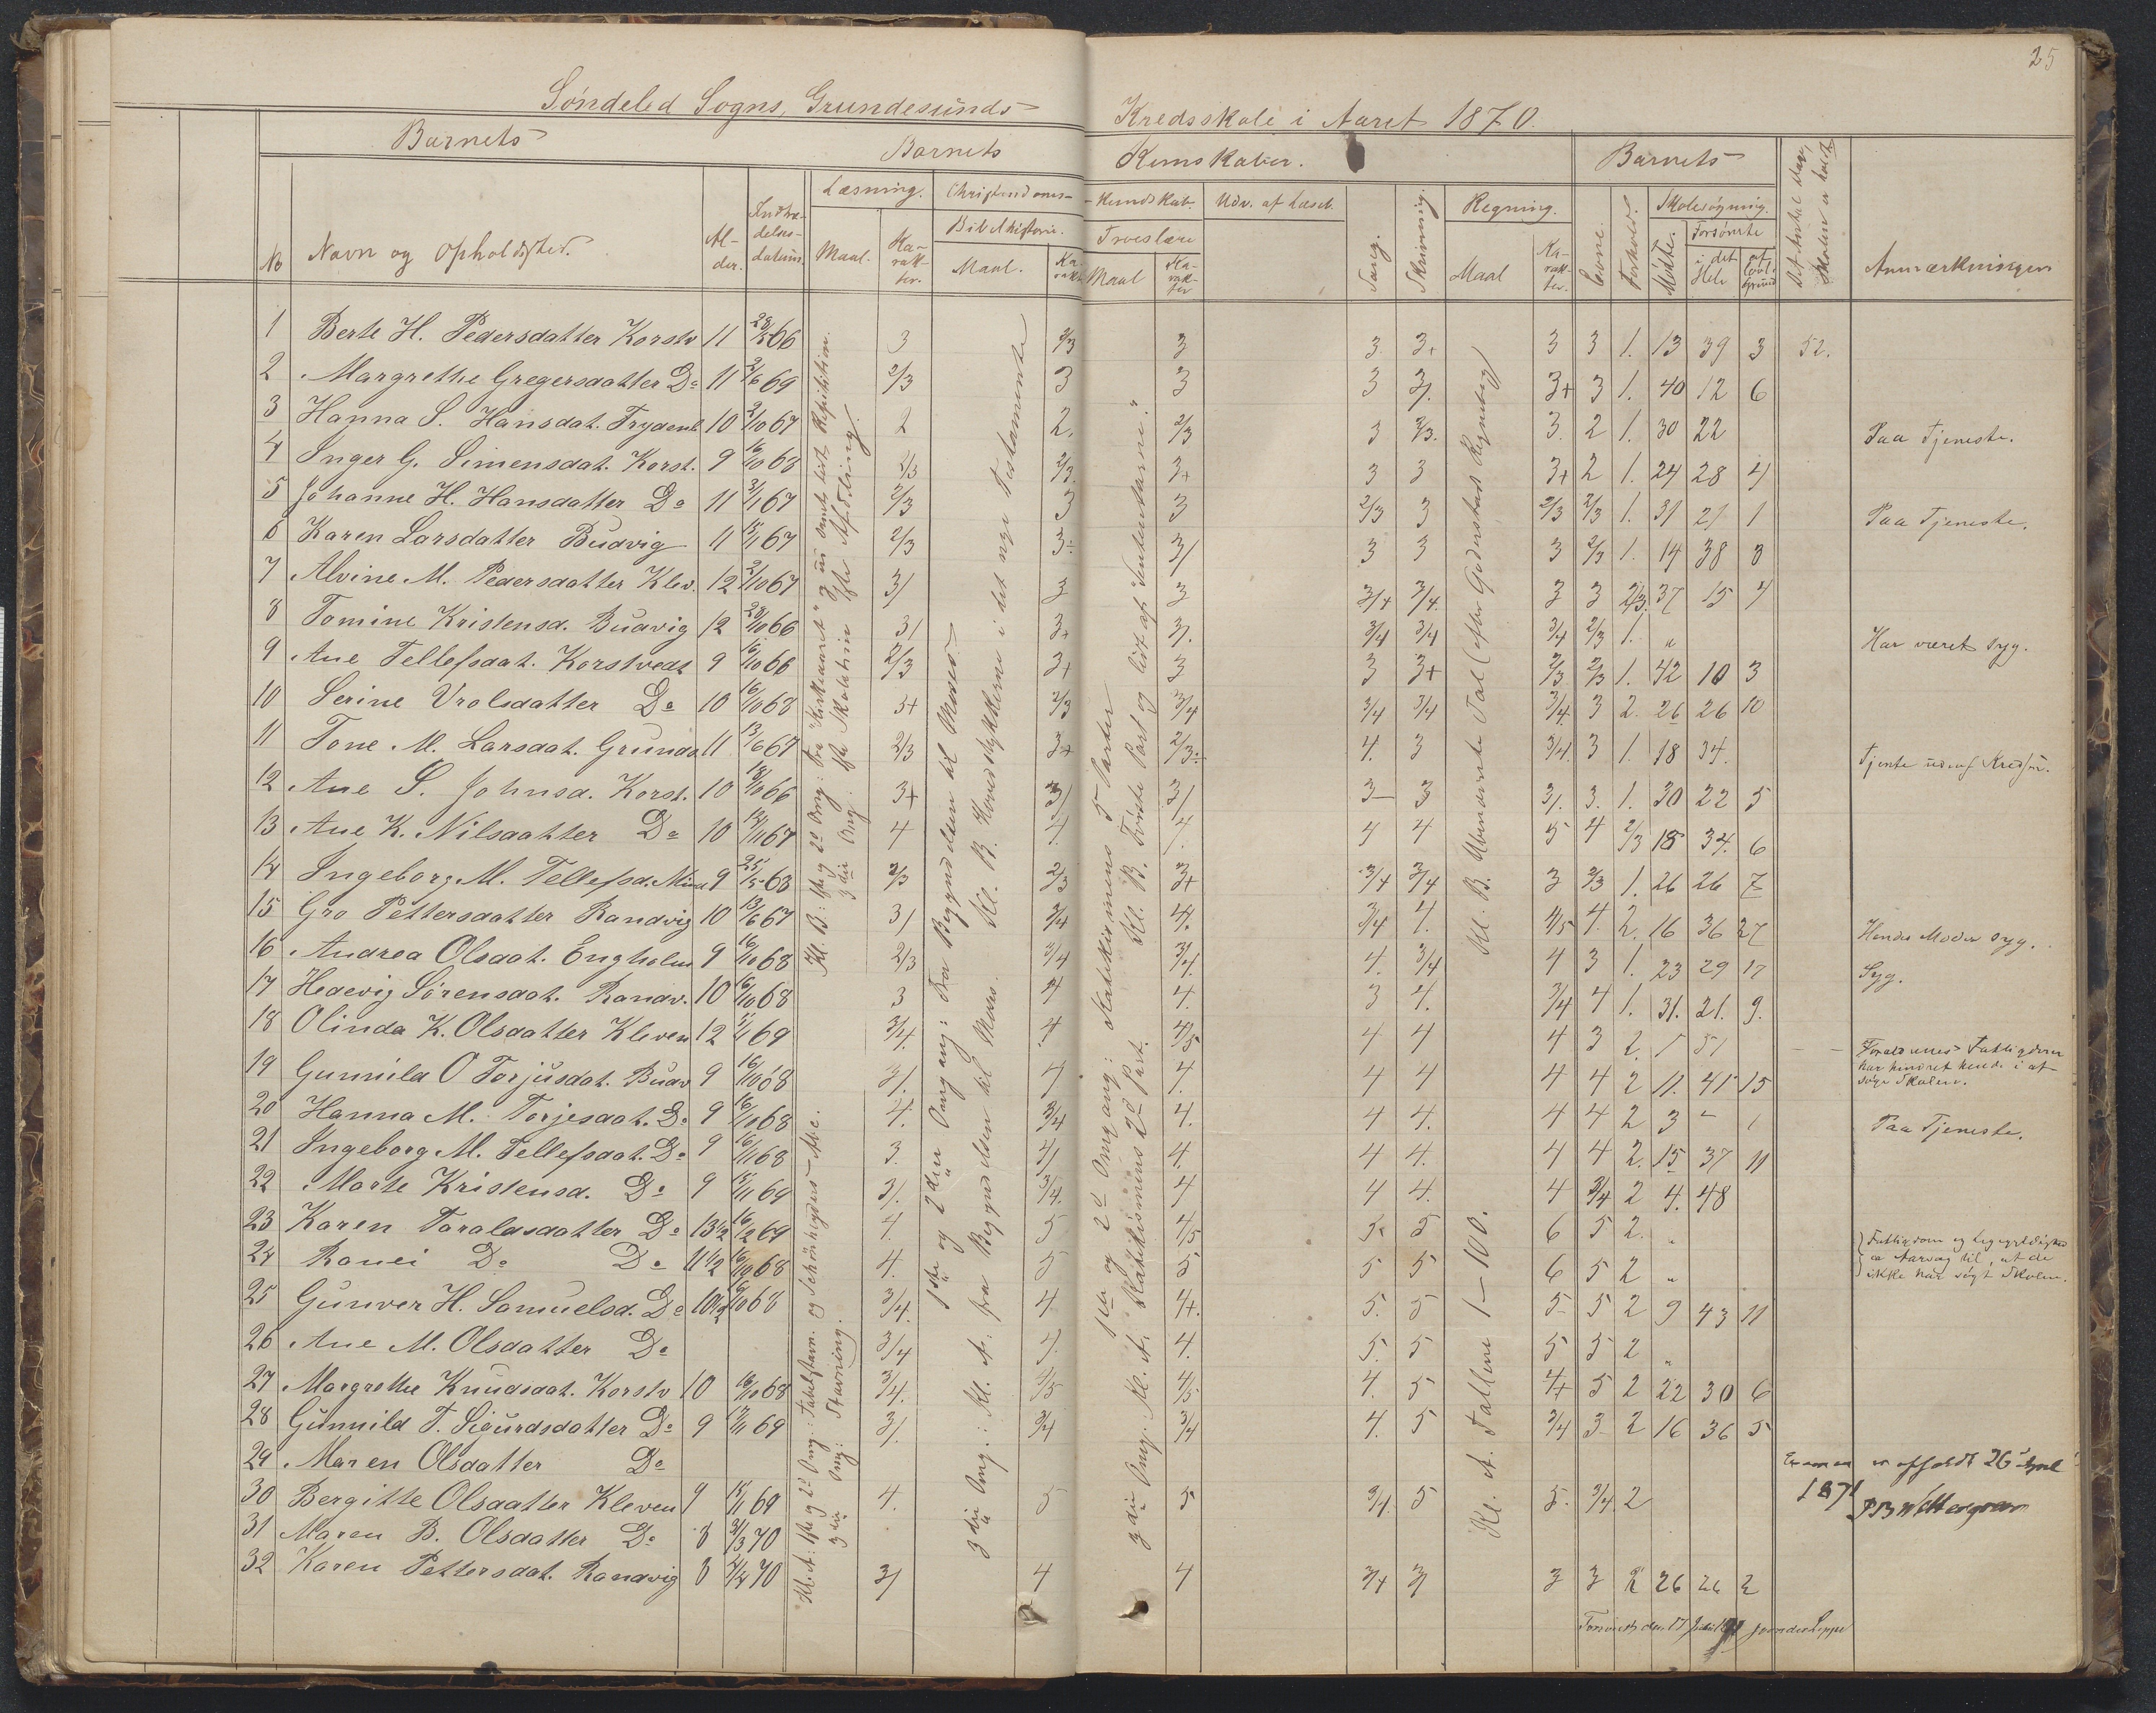 25
Søndeled Sogns, Grundesunds Kredsskole i Aaret 1870.
Barnets Barnets Kundskaber. Barnets
No Navn og Opholdssted. Al-der. Indtræ-delses-datum. Læsning. Maal. Ka-rak-ter. Christendoms-Kundskab. Bibelhistorie. Maal. Ka-rakt. Troeslære Maal Ka-rak-ter Udv. af Læseb. Sang. Skrivning Regning. Maal Ka-rak-ter. Evne. Forhold. Skolesøgning. Mødte. Forsømte i det Hele af lovl. Grund Det Antal Dage, Skolen er holdt Anmærkninger
1 Berte H. Pedersdatter Korstv 11 66 3 2/3 3 3 3+ 3 3 1. 13 39 3 52.
2 Margrethe Gregersdatter Do 11 2/6 69 2/3 3 3 3 3/. 3+ 3 1. 40 12 6
3 Hanna S. Hansdat. Frydenl. 10 2/10 67 2 2. 2/3 3 2/3. 3. 2 1. 30 22 Paa Tjeneste.
4 Inger G. Simensdat. Korst. 9 16/10 68 2/3 2/3. 3+ 3 3 3+ 2 1. 24 28 4
5 Johanne H. Hansdatter Do 11 3/1 67 2/3 3 3 2/3 3 2/3 2/3 1. 31 21 1 Paa Tjeneste.
6 Karen Larsdatter Budvig 11 67 2/3 3÷ 3/ 3 3 3 2/3 1. 14 38 8
7 Alvine M. Pedersdatter Klev. 12 2/10 67 3/ 3 3 3/4 3/4. 3 3 2/3. 37 15 4
8 Tomine Kristensd. Budvig 12 28/10 66 3/ 3+ 3/. 3/4 3/4 3/4 2/3 1. „ Har været syg.
9 Ane Tellefsdat. Korstvedt 9 66 2/3 3+ 3 3 3+ 2/3 2/3 1. 42 10 3
10 Serine Vrolsdatter Do 10 16/10 68 3+ 2/3 3/4 3/4 3/4 3/4. 3 2. 26 26 10
11 Tone M. Larsdat. Grunds. 11 13/6 67 2/3 3+ 2/3÷ 4. 3 3/4. 3 1. 18 34. Tjente udenf Kredsen.
12 Ane S. Johnsd. Korst. 10 18/10 66 3+ 3/ 3/ 3- 3 3/. 3. 1. 30 22 5
13 Ane K. Nilsdatter Do 10 67 4 4. 4. 4 4 5 4 2/3 18 34. 6
14 Ingeborg M. Tellefsd. 9 68 2/3 2/3 3+ 3/4 3/4 3 2/3 1. 26 26 7
15 Gro Pettersdatter Randvig 10 13/6 67 3/ 3/4 4. 3/4 4. 4/5 4. 2. 16 36 27 Hendes Moder syg.
16 Andrea Olsdat. Engholm 9 16/10 68 2/3 3/4 3/4. 4. 3/4 4 3 1. 23 29 17 Syg.
17 Hedevig Sørensdat. Randv. 10 16/10 68 3 4 4. 3 4. 3/4 4 1. 31. 21. 9.
18 Olinda K. Olsdatter Kleven 12 69 3/4. 4 4/5 4 4 4 3 2. 1 51
19 Gunnild O Torjusdat. Budv 9 16/10 68 3/. 4 4. 4 4 4 4 2 11. 41 15 Forældrenes Fattigdom har hindret hende i at søge Skolen.
20 Hanna M. Torjesdat. Do 9 16/10 68 4. 3/4 4. 4 4. 4 4 2 3 - 1 Paa Tjeneste.
21 Ingeborg M. Tellefsdat. Do 9 16/11 68 3. 4/ 4. 4 4. 4 4 2. 15 37 11
22 Marte Kristensd. Do 9 15/11 69 3/. 3/4. 4 4 4. 4 3/4 2 4. 48
23 Karen Taraldsdatter Do 13 1/2 16/12 69 4. 5 4/5 5 5 6 5 2. „ Fattigdom og ligegyldighed er Aarsag til, at de ikke har søgt Skolen.
24 Ronei Do Do 11 1/2 16/10 68 4. 5 5 5 5 6 5 2 „
25 Gunver H. Samuelsd. Do 10 1/2 68 3/4. 4 4+. 5. 5 5 5 2 9 43 11
26 Ane M. Olsdatter Do 3/4 4. 4. 5. 5 5 5 2 „
27 Margrethe Knudsdat. Korstv 10 16/10 68 3/4. 4/5 4/5 4. 5 4+ 5 2 22 30 6
28 Gunnild T. Sigurdsdatter Do 9 69 3/. 3/4 3/4 4. 5 3/4 3 2 16 36 5
29 Maren Olsdatter Do
30 Bergitte Olsdatter Kleven 9 15/11 69 4. 5 5 3/4. 5 5. 3/4. 2
31 Maren B. Olsdatter Do 8 3/3 70
32 Karen Pettersdat. Randvig 8 70 3/ 4 4 3/4 3/ 3 3 2 26 26 2
Kl. B: 1ste og 2d Omg: Fra "Kirkeaaret" og ud samt lidt Repitition.
3die Omg: 1ste Skoletrin 1ste Afdeling.
Kl. A: 1ste og 2d Omg: og Abc.
3die Omg: Stavning.
1ste og 2den Omgang: Fra Begyndelsen til Moses
Kl. B. Hovedstykkerne i det nye Testamente
3die Omg.: Kl. A: fra Begyndelsen til Moses.
1ste og 2d Omgang: Katekismens 5 Parter
Kl. B. Første Part og lidt af "Sententserne."
3die Omg: Kl. A. Katekismens 2d Part.
Kl. B. Ubenævnte Tal (efter Guderstads Regnebog)
Kl. A. Tallene 1-100.
Examen er afholdt 26 1871